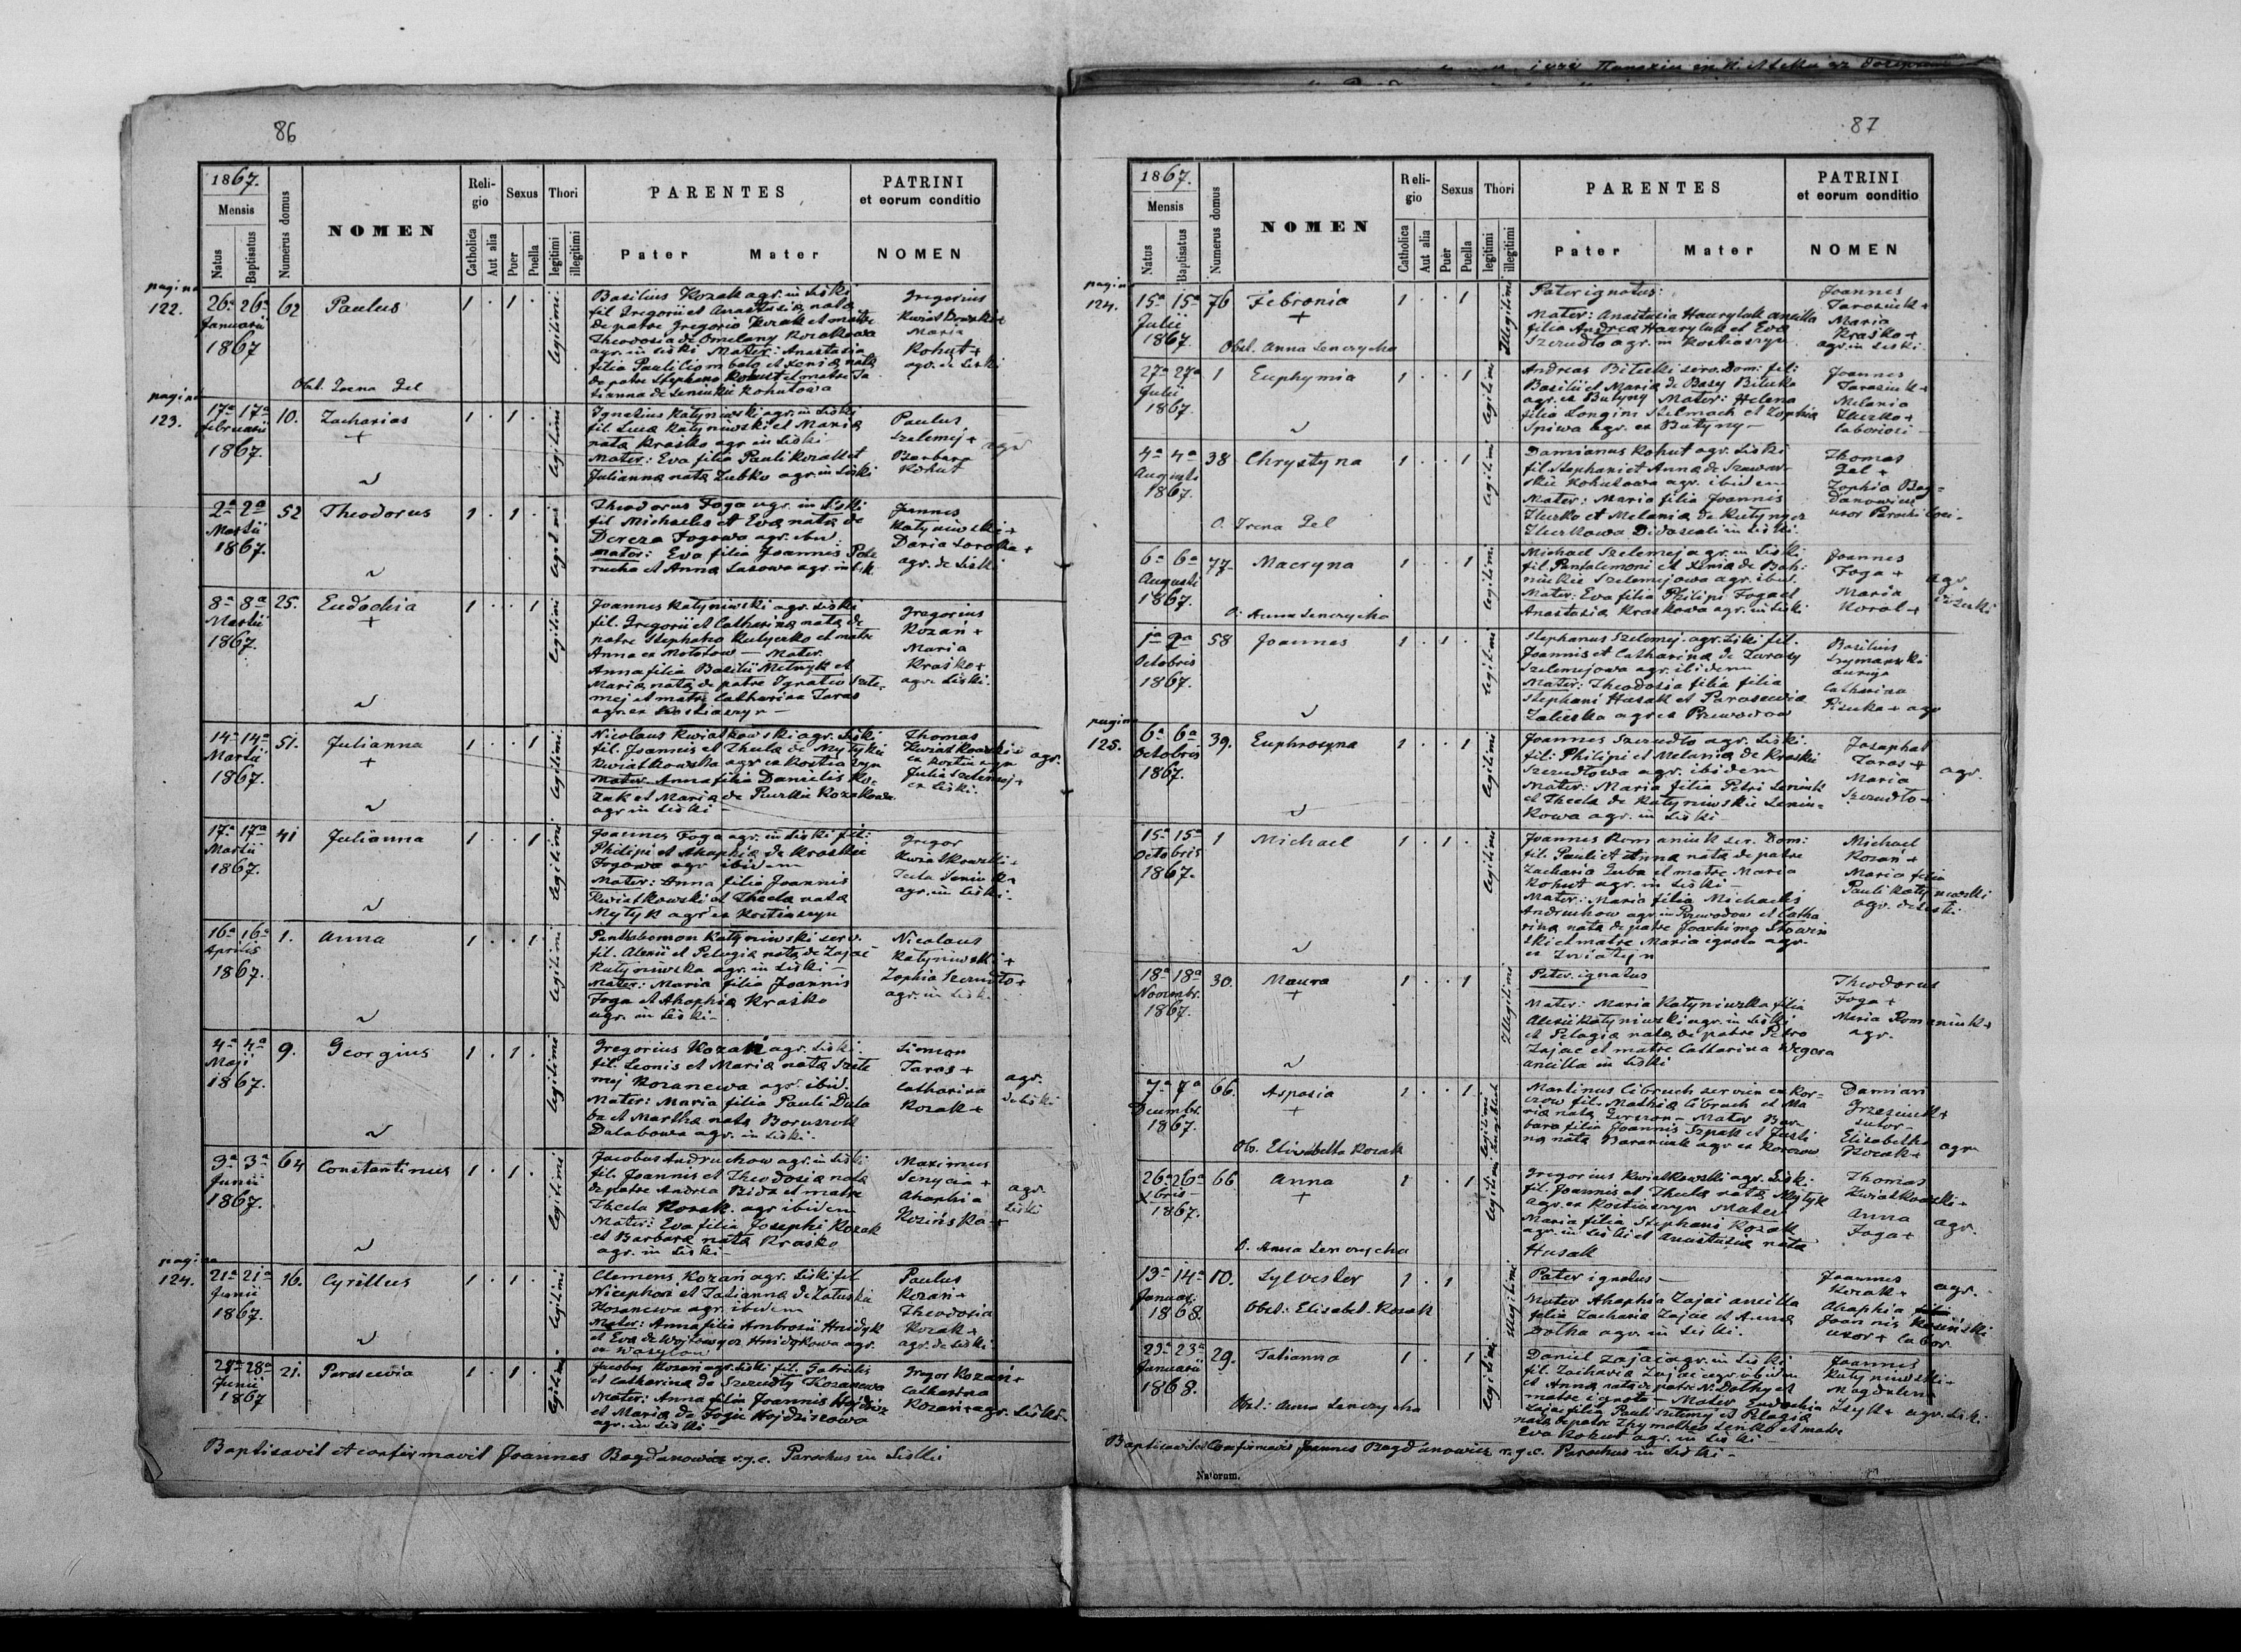 86
1867.
Mensis
Natus
Baptisatus
Numerus domus
NOMEN
Religio
Catholica
Aut alia
Sexus
Puer
Puella
Thori
legitimi
illegitimi
PARENTES
Pater
Mater
PATRINI
et eorum conditio
NOMEN
pagina
122.
26a 26a
Januarii
1867
62
Paulus
1 . 1 .
legitimi
Basilius Kozak agr. in Liski
fil. Gregorii et Anastasia nata
de patre Gregorio Kozak et matre
Theodosia de Omelany Kozakowa
agr. in Liski Mater: Anastasia
filia Pauli
de patre Stephano Kohut et matre Ta
tianna de Leniukie Kohutowa
Gregorius
Kwiatkowski +
Maria
Kohut +
agr. ex Liski
pagina
123.
17a 17a
Februarii
1867.
10.
Zacharias
+
1 . 1 .
legitimi
Ignatius Katyniwski agr. in Liski
fil. Luca Katyniwski et Maria
nata Krasko agr. in Liski
Mater: Eva filia Pauli Kozak et
Julianna nata Zubko agr. in Liski
Paulus
Szelemej +
Barbara
Kohut
agr
2a 2a
Martii
1867.
52
Theodorus
1 . 1 .
legitimi
Theodorus Foga agr. in Liski
fil. Michaelis et Eva nata de
Dereza Fogowa agr. ibid.
Mater: Eva filia Joannis
rucha et Anna Lasowa agr. in Lisk.
Joannes
Katyniwski +
Daria Soroka +
agr. de Liski
8a 8a
Martii
1867.
25.
Eudochia
+
1 . . 1
legitimi
Joannes Katyniwski agr. Liski
fil. Gregorii et Catharina nata de
patre Stephano Kutyczko et matre
Anna ex Mototow — Mater.
Anna filia Basilii Melnyk et
Maria nata de patre Ignatio Szele-
mej et matre Catharina Taras
agr. ex Kostiaszyn —
Gregorius
Kozan +
Maria
Krasko +
agr. Liski.
14a 14a
Martii
1867.
51.
Julianna
+
1 . . 1
legitimi
Nicolaus Kwiatkowski agr. Liski
fil. Joannis et Thecla de Mytykie
Kwiatkowska agr. ex Kostiaszyn
Mater Anna filia Danielis Ko-
zak et Maria de Puzkie Kozakowa
agr in Liski
Thomas
Kwiatkowski +
ex Kostiaszyn
Julia Szelemej +
ex Liski.
agr.
17a 17a
Martii
1867.
41
Julianna
1 . . 1
legitimi
Joannes Foga agr. in Liski fil:
Philipi et Ahaphia de Kraskie
Fogowa agr. ibidem
Mater: Anna filia Joannis
Kwiatkowski et Thecla nata
Mytyk agr ex Kostiaszyn
Gregor
Kwiatkowski +
Tecla Leniuk +
agr. in Liski.
16a 16a
Aprilis
1867.
1.
Anna
1 . . 1
legitimi
Panthalemon Katyniwski serv.
fil. Alexii et Pelagia nata de Zajac
Katyniwska agr. in Liski —
Mater: Maria filia Joannis
Foga et Ahaphia Krasko
agr. in Liski —
Nicolaus
Katyniwski +
Zophia Szerudto +
agr. in Liski
4a 4a
Maji
1867.
9.
Georgius
1 . 1 .
legitimi
Gregorius Kozań agr. Liski.
fil. Leonis et Maria nata Szele
mej Kozanewa agr. ibid.
Mater: Maria filia Pauli Dula
ba et Martha nata
Dulabowa agr. in Liski.
Simeon
Taras +
Catharina
Kozak +
agr.
de Liski
3a 3a
Junii
1867.
64
Constantinus
1 . 1 .
legitimi
Jacobus Andruchow agr. in Liski
fil. Joannis et Theodosia nata
de patre Andrea Bida et matre
Thecla Kozak. agr ibidem
Mater: Eva filia Josephi Kozak
et Barbara nata Krasko
agr. in Liski
Maximus
Senycia +
Ahaphia
Kozińska +
agr.
Liski
pagina
124.
21a 21a
Junii
1867.
16.
Cyrillus
1 . 1 .
legitimi
Clemens Kozań agr. Liski fil.
Nicephori et Tatianna de Zatuskie
Kozanewa agr. ibidem
Mater: Anna filia Ambrosii Hnidyk
et Eva de Hnidykowa agr.
ex Wasylow
Paulus
Kozań +
Theodosia
Kozak +
agr. de Liski.
28a 28a
Junii
1867
21.
Parascevia
1 . 1 .
legitimi
Jacobus Kozań agr. Liski fil. Gabrielis
et Catharina de Szerudty Kozanewa
Mater: Anna filia Joannis
et Maria de Fogie
agr. in Liski —
Gregor Kozań +
Catharina
Kozań + agr. Liski.
Baptisavit et confirmavit Joannes Bogdanowicz r.g.c. Parochus in Liski
87
1867.
Mensis
Natus
Baptisatus
Numerus domus
NOMEN
Religio
Catholica
Aut alia
Sexus
Puer
Puella
Thori
legitimi
illegitimi
PARENTES
Pater
Mater
PATRINI
et eorum conditio
NOMEN
pagina
124.
15a 15a
Julii
1867.
76
Febronia
+
Obst. Anna Senczycha
1 . . 1
Illegitimi
Pater ignotus:
Mater: Anastasia Hawryluk ancilla
filia Andrea Hawryluk et Eva
Szerudto agr. in Kostiaszyn
Joannes
Tarasiuk +
Maria
Krasko +
agr. in Liski.
27a 27a
Julii
1867.
1
Euphymia
1 . . 1
legitimi
Andreas Bilecki serv. Dom: fil:
Basilii et Maria de Basy
agr. ex Butyny Mater: Helena
filia Longini Stelmach et Zophia
Spiwa agr. ex Butyny —
Joannes
Tarasiuk +
Melania
laboriosi —
4a 4a
Augusti
1867.
38
Chrystyna
O. Irena Gel
1 . . 1
legitimi
Damianus Kohut agr. Liski
fil. Stephani et Anna de
Kohutowa agr. ibidem
Mater: Maria filia Joannis
et Melania de
Didascali in Liski.
Thomas
Gel +
Zophia Bog-
danowicz
uxor Parochi loci —
6a 6a
Augusti
1867.
77
Macryna
O. Anna Senczycha
1 . . 1
legitimi
Michael Szelemej agr. in Liski
fil. Pantalemoni et Xenia de
Szelemejowa agr. ibid.
Mater: Eva filia Philipi Foga et
Anastasia Kraskowa agr. in Liski
Joannes
Foga +
Maria
Korol +
agr.
1a 2a
Octobris
1867.
58
Joannes
1 . 1 .
legitimi
Stephanus Szelemej. agr. Liski fil.
Joannis et Catharina de Tarasy
Szelemejowa agr. ibidem
Mater: Theodosia filia filia
Stephani Husak et Parascevia
Zaleska agr ex Przewodow
Basilius
Szymanski
auriga
Catharina
+ agr
pagina
125.
6a 6a
Octobris
1867.
39.
Euphrosyna
1 . . 1
legitimi
Joannes Szerudto agr. Liski.
fil: Philipi et Melania de Kraskie
Szerudtowa agr. ibidem
Mater: Maria filia Petri Leniuk
et Thecla de Katyniwskie Leniu-
kowa agr. in Liski
Josaphat
Taras +
Maria
Szerudto +
agr.
15a 15a
Octobris
1867.
1
Michael
1 . 1 .
legitimi
Joannes Romaniuk ser. Dom:
fil. Pauli et Anna nata de patre
Zacharia Zuba et matre Maria
Kohut agr. in Liski —
Mater: Maria filia Michaelis
Andruchow agr. in Przewodow et Catha
rina nata de patre Joachimo
ski et matre Maria ignota agr.
Michael
Kozań +
Maria filia
Pauli Katyniwski
agr. de Liski.
18a 18a
Novembr.
1867.
30.
Maura
+
1 . . 1
Illegitimi
Pater ignotus
Mater: Maria Katyniwska filia
Alexii Katyniwski agr. in Liski
et Pelagia nata de patre Petro
Zajac et matre Catharina Wegera
ancilla in Liski
Theodorus
Foga +
Maria Romaniuk +
agr.
7a 7a
Decembr.
1867.
66.
Aspasia
+
Ob. Elisabetha Kozak
1 . . 1
legitimi
Martinus Cibruch servien ex Kor-
czow fil. Mathia Cibruch et Ma
ria nata — Mater Bar-
bara filia Joannis Szpak et Justi
na nata Baraniuk agr ex Korczow
Damian
Grzesiuk +
sutor —
Elisabetha
Kozak +
agr
26a 26a
Xbris
1867.
66
Anna
+
O. Anna Senczycha
1 . . 1
legitimi
Gregorius Kwiatkowski agr. Liski.
fil. Joannis et Thecla nata Mytyk
agr. ex Kostiaszyn Mater
Maria filia Stephani Kozak
agr. in Liski et Anastasia nata
Husak
Thomas
Kwiatkowski +
Anna
Foga +
agr.
13a 14a
Januar.
1868.
10.
Sylvester
Obst: Elisabet. Kozak
1 . 1
Illegitimi
Pater ignotus —
Mater Ahaphia Zajac ancilla
filia Zacharia Zajac et Anna
Dotha agr. in Liski.
Joannes
Kozak +
Ahaphia
Joannis Koziński
uxor + labor.
agr.
23a 23a
Januarii
1868.
29.
Tatianna
Obst: Anna Senczycha
1 . 1
legitimi
Daniel Zajac agr. in Liski
fil. Zacharia Zajac agr. ibidem
et Anna nata de patre N. Dothy et
matre ignota — Mater Eudochia
Zajac filia Pauli Szelemej et Pelagia
nata de patre Thymotheo Senko et matre
Eva Kohut agr. in Liski —
Joannes
Katyniwski +
Magdalena
+ agr. Liski
Baptisavit et Confirmavit Joannes Bogdanowicz r.g.c. Parochus in Liski —
Natorum.